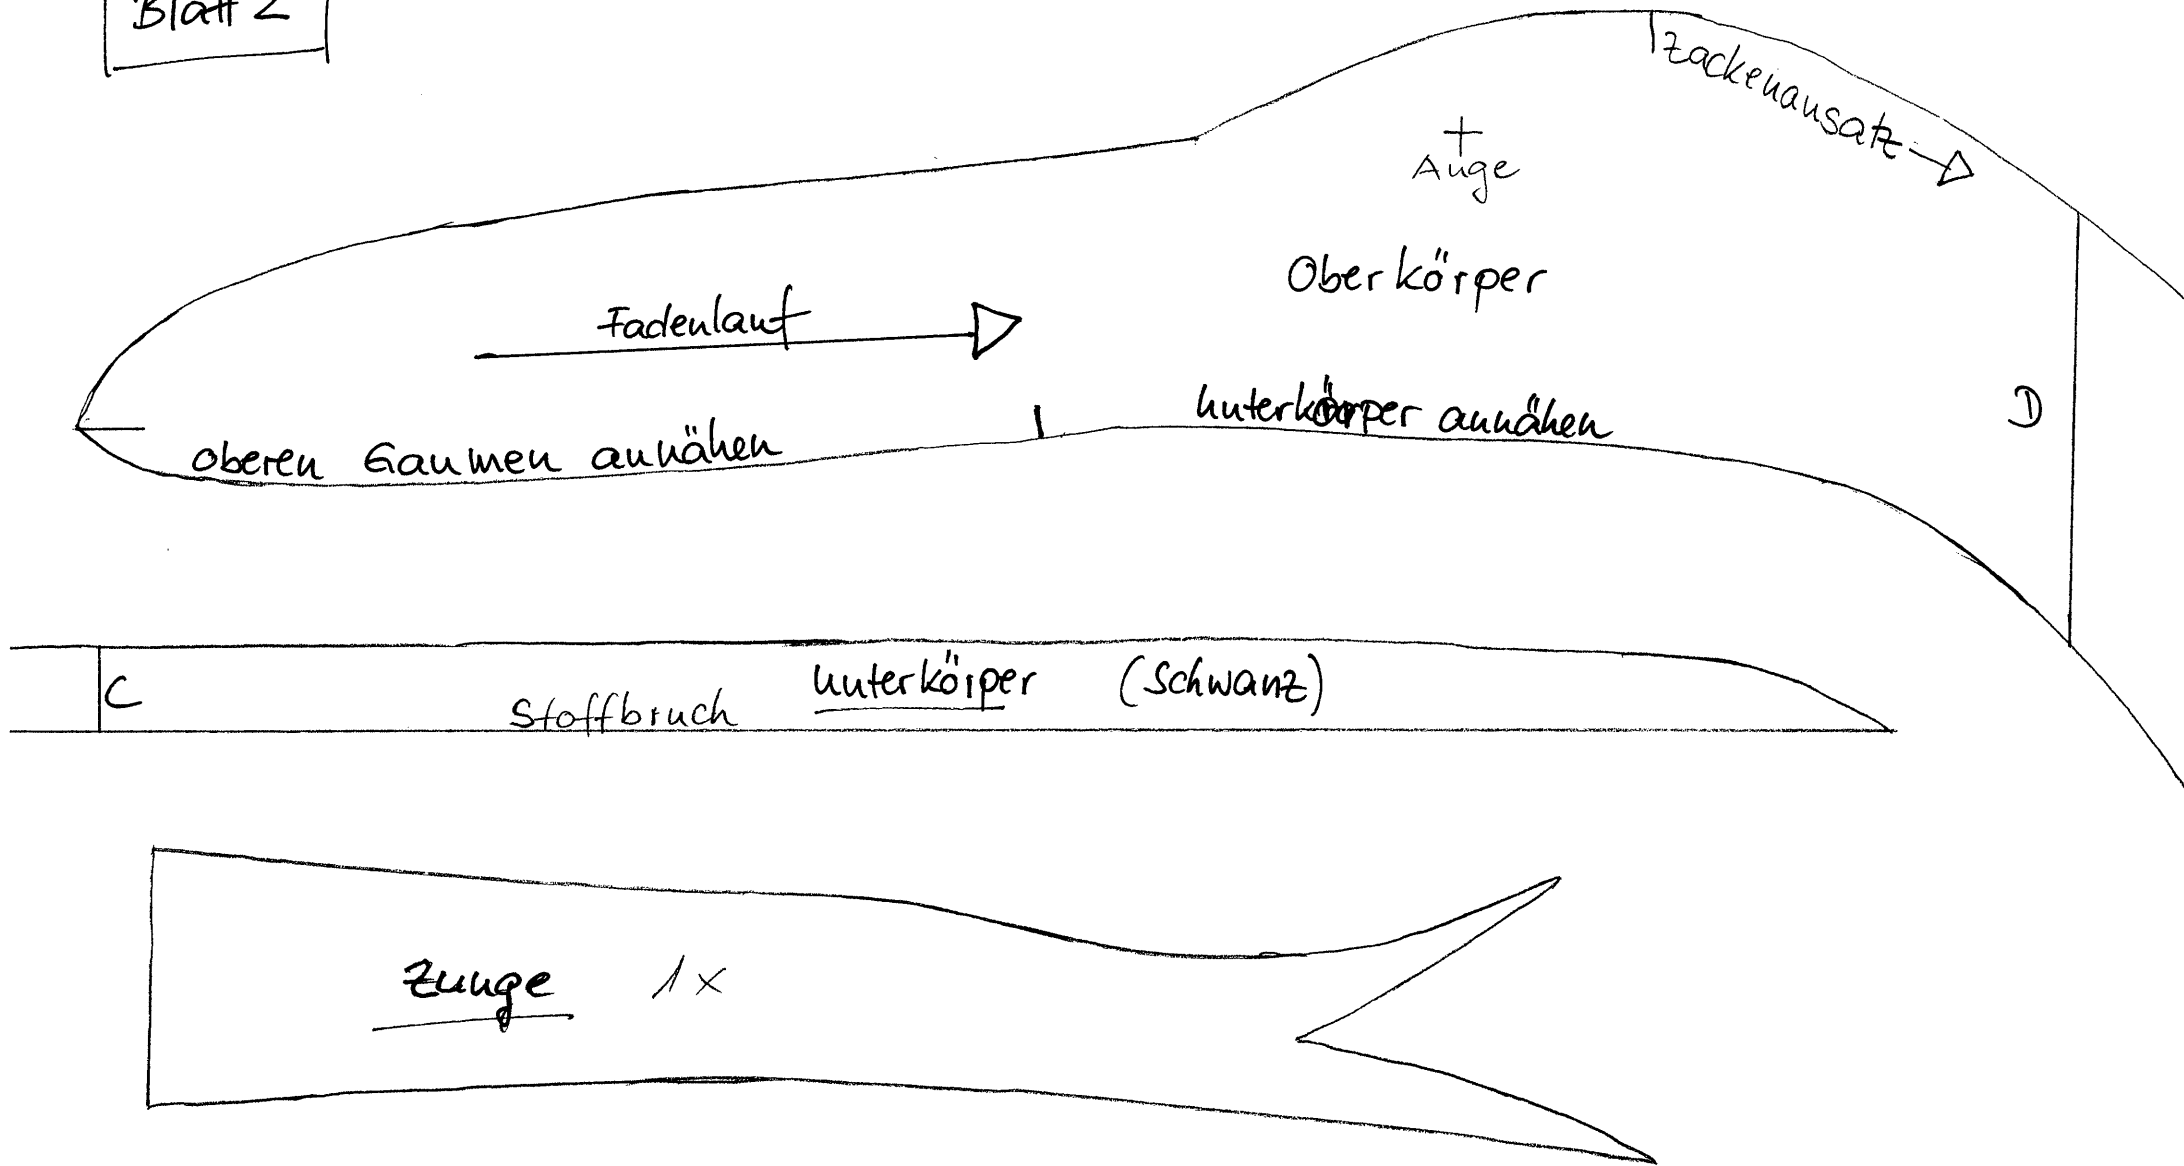 Blatt 2
Zackenansatz
Auge
Oberkörper
Fadenlauf
Unterkörper annähen
D
oberen Gaumen annähen
C
Stoffbruch
Unterkörper (Schwanz)
Zunge 1x